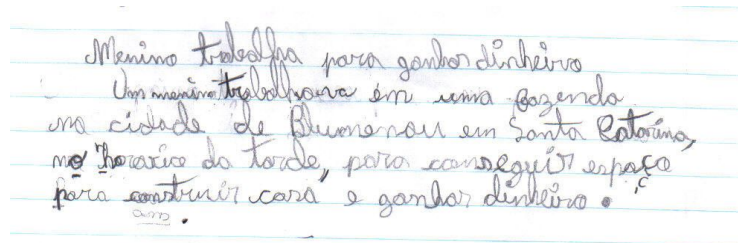 Menino trabalha para ganhar dinheiro
Um menino trabalhava em uma fazenda
na cidade de Blumenau em Santa Catarina,
no horario da tarde, para conseguir espaço
para construir casa e ganhar dinheiro.